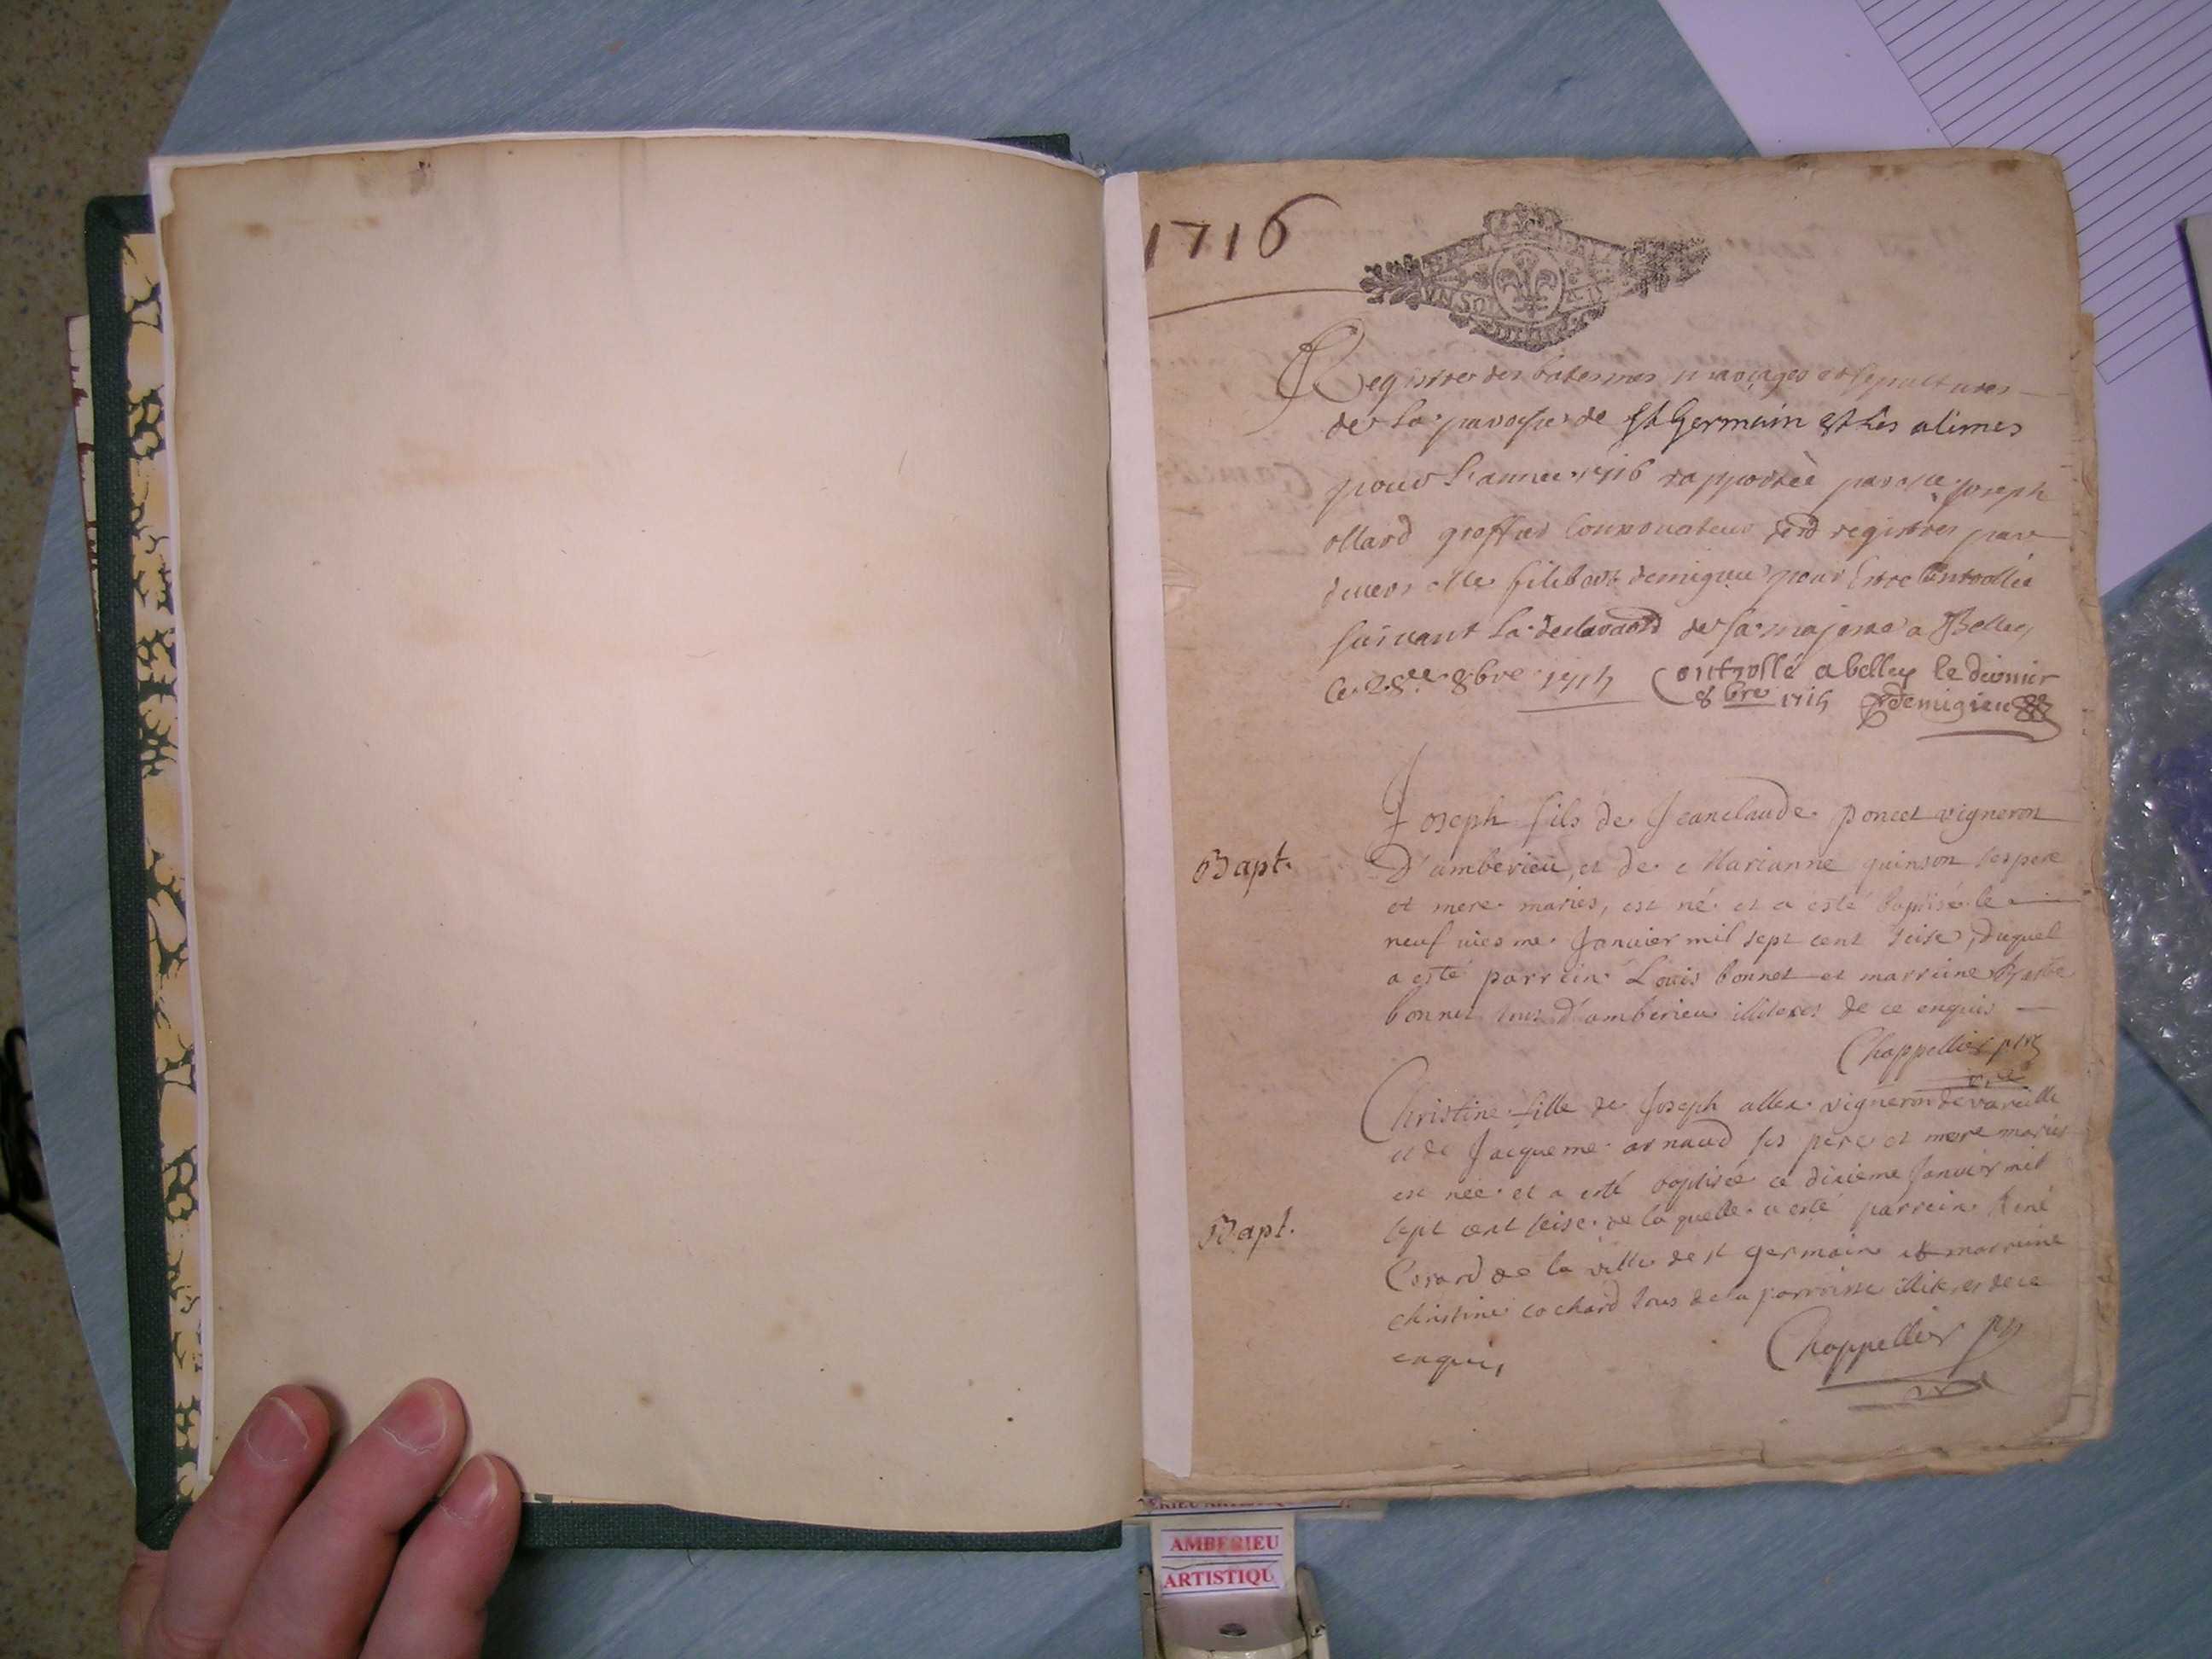 1716
UN SOL
Registre des batesmes mariages et sepultures
de la paroisse de St Germain Et Les alimes
pour L'annee 1716 rapportèe par Me Joseph
ollard greffier Conservateur desd registres par
devers Me filibert demigieu pour Estre Controllée
suivant La declaraōn de sa majesté a Belley
Ce 28e 8bre 1715 Controllé a belley le dernier
8bre 1715 demigieu
Joseph fils de Jeanclaude poncet vigneron
Bapt. D'amberieu, et de Marianne quinson ses pere
et mere mariés, est né et a esté baptisé le
neufviesme Janvier mil sept cent seise, duquel
a esté parrein Louis bonnet et marreine
bonnet tous d'amberieu illiteres de ce enquis
Chappellier ptre
Christine fille de Joseph allex vigneron de vareille
et de Jacqueme arnaud ses pere et mere mariés
est née et a esté baptisée ce dixieme Janvier mil
Bapt. sept cent seise de laquelle a esté parrein René
Cosard de la ville de st germain et marreine
christine cochard tous de la parroisse illiteres de ce
enquis
Chappellier ptre
AMBERIEU
ARTISTIQU